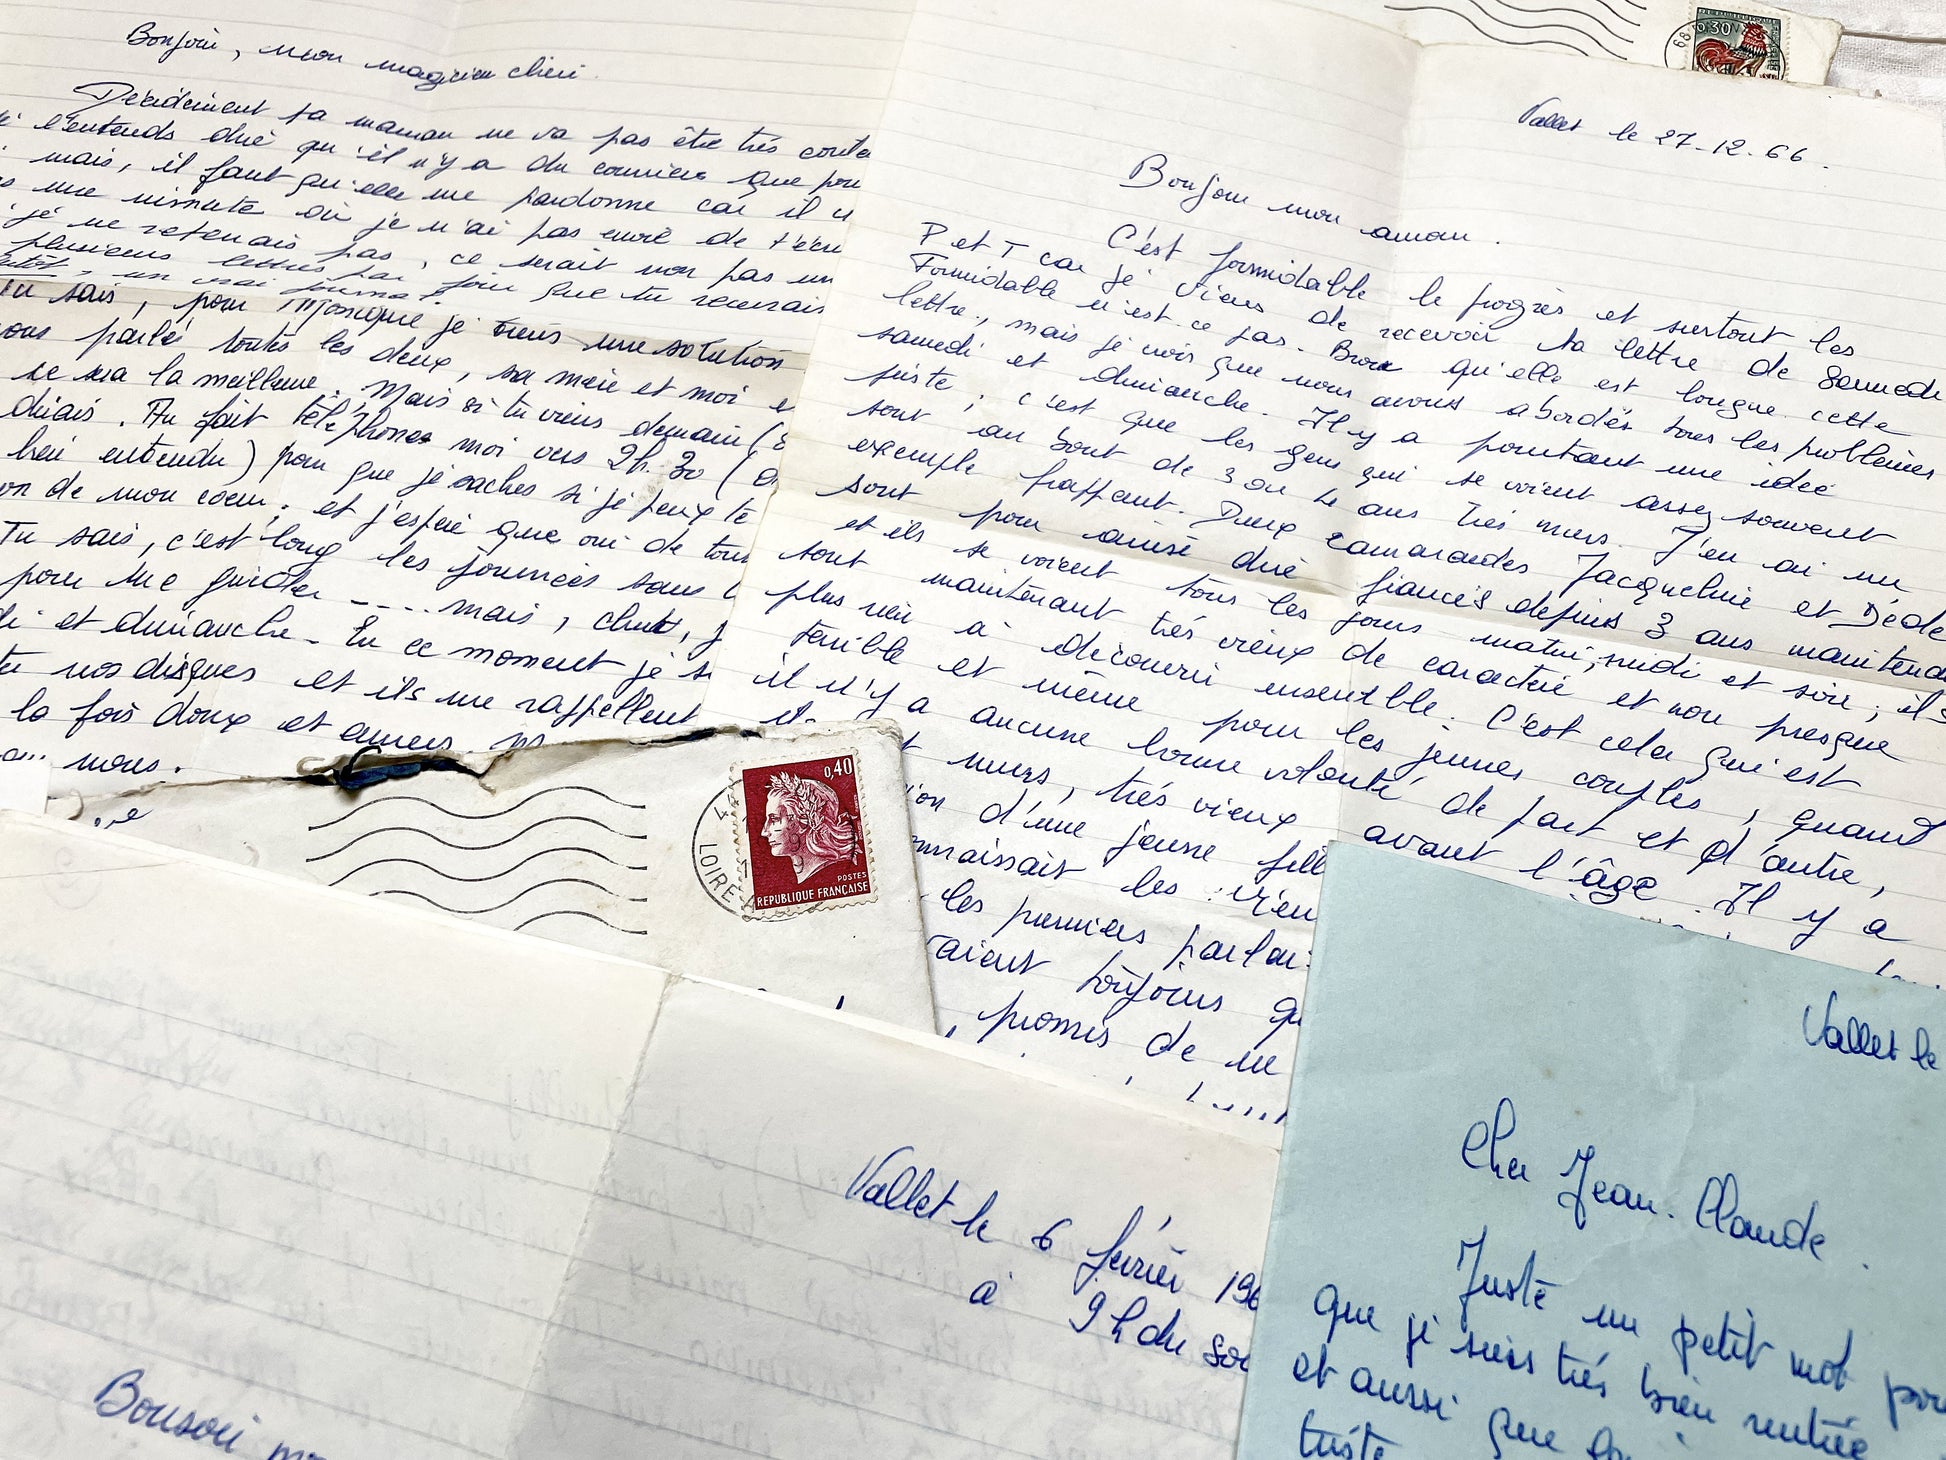 Bonjour, mon magicien chéri.
Décidément ta maman ne va pas être très conte
l'entends dire qu'il n'y a du courrier que pou
mais, il faut qu'elle me pardonne car il n
une minute où je n'ai pas envie de t'écri
je ne retenais pas, ce serait non pas un
plusieurs lettres par jour que tu recevrais
un vrai journal.
Tu sais, pour Monique je viens une solution
parlé toutes les deux, sa mère et moi e
se sera la meilleure. Mais si tu viens demain (
dirais. Au fait téléphones moi vers 2h.30 (
bien entendu) pour que je saches si je peux te
on de mon coeur, et j'espère que oui de tous
Tu sais, c'est long les journées sans
pour me guider ---- mais, chut, j
di et dimanche - En ce moment je s
nos disques et ils me rappellent
la fois doux et amers.
nous.
0,30
68
Vallet le 27-12-66.
Bonjour mon amour.
C'est formidable le progrès et surtout les
P et T car je viens de recevoir ta lettre de Samedi
Formidable n'est ce pas. Bravo qu'elle est longue cette
lettre, mais je crois que nous avons abordés tous les problèmes
samedi et dimanche. Il y a pourtant une idée
juste ; c'est que les gens qui se voient assez souvent
sont au bout de 3 ou 4 ans très murs. J'en ai un
exemple frappant. Deux camarades Jacqueline et Dédé
sont pour ainsi dire fiancés depuis 3 ans maintena
et ils se voient tous les jours matin, midi et soir ; ils
sont maintenant très vieux de caractère et non presque
plus rien à découvrir ensemble. C'est cela qui est
terrible et même pour les jeunes couples, quand
il n'y a aucune bonne volonté de part et d'autre,
murs, très vieux avant l'âge. Il y a
ion d'une jeune fill
nnaissait les
les premiers parlai
raient toujours qu
promis de ne
0,40
POSTES
REPUBLIQUE FRANÇAISE
44
LOIRE-A
Vallet le 6 février 196
à 9h du soi
Bonsoir mo
Vallet le
Cher Jean-Claude.
Juste un petit mot pou
que je suis très bien rentrée
et aussi que
triste